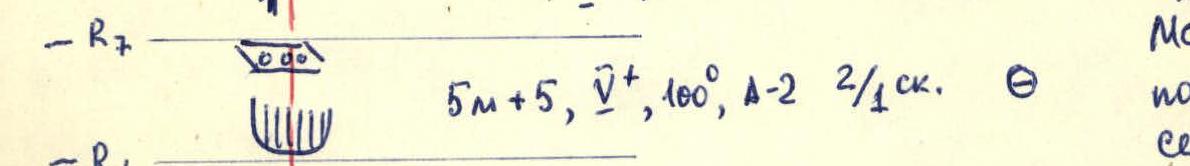 – R7
5м+5, V̲̄⁺, 100°, А-2 2/1 ск. ⊖
Мо
по
се
– R